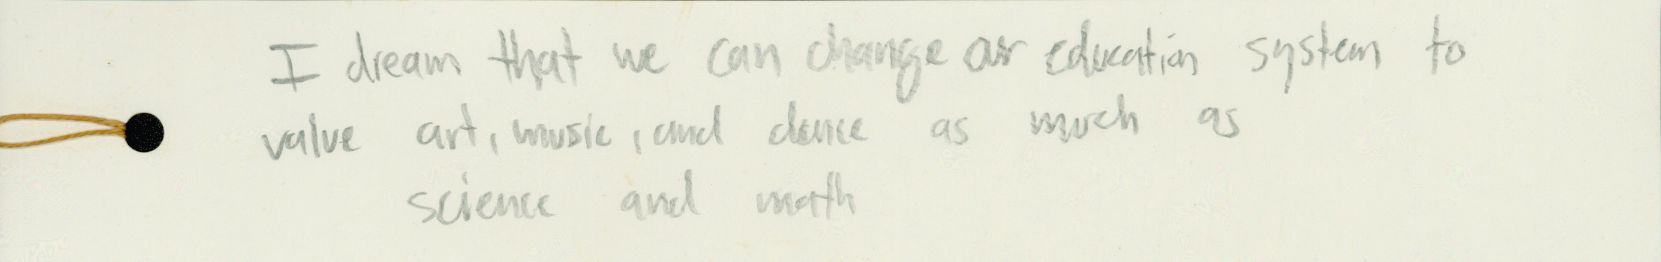 I dream that we can change our education system to
value art, music, and dance as much as
science and math